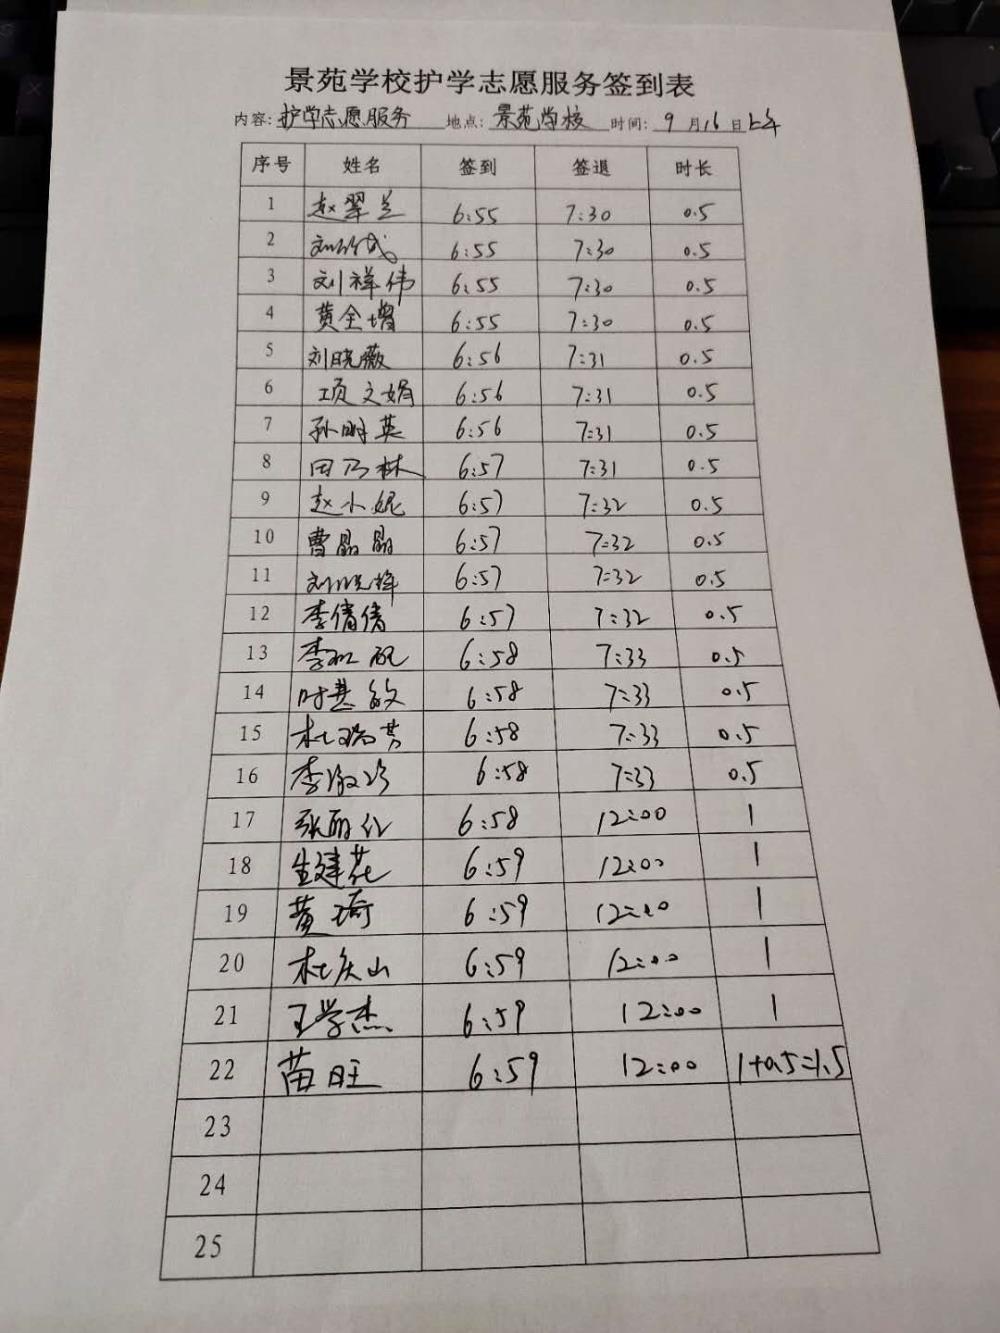 景苑学校护学志愿服务签到表
内容: 护学志愿服务 地点: 景苑学校 时间: 9月16日上午
序号 姓名 签到 签退 时长
1 赵翠兰 6:55 7:30 0.5
2 刘 6:55 7:30 0.5
3 刘祥伟 6:55 7:30 0.5
4 黄全增 6:55 7:30 0.5
5 刘晓薇 6:56 7:31 0.5
6 项文娟 6:56 7:31 0.5
7 孙明英 6:56 7:31 0.5
8 田乃林 6:57 7:31 0.5
9 赵小妮 6:57 7:32 0.5
10 曹晶晶 6:57 7:32 0.5
11 刘晓 6:57 7:32 0.5
12 李倩倩 6:57 7:32 0.5
13 李 6:58 7:33 0.5
14 时慧敏 6:58 7:33 0.5
15 杜瑞芳 6:58 7:33 0.5
16 李淑珍 6:58 7:33 0.5
17 张丽红 6:58 12:00 1
18 生建花 6:59 12:00 1
19 黄琦 6:59 12:00 1
20 杜庆山 6:59 12:00 1
21 王学杰 6:59 12:00 1
22 苗旺 6:59 12:00 1+0.5=1.5
23
24
25